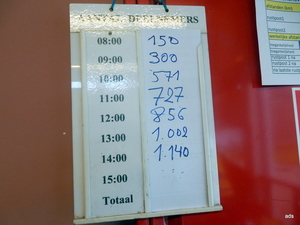 AANTAL DEELNEMERS
08:00 150
09:00 300
10:00 571
11:00 727
12:00 856
13:00 1.002
14:00 1.140
15:00 ...
Totaal
afstanden (km)
rustpost1
rustpost2
ads